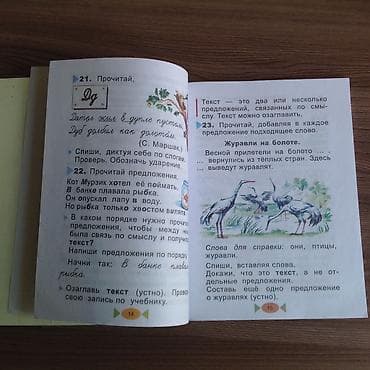 21. Прочитай,
Дд
Дятел жил в дупле пустом,
Дуб долбил как долотом.
(С. Маршак.)
Спиши, диктуя себе по слогам.
Проверь. Обозначь ударение.
22. Прочитай предложения.
Кот Мурзик хотел её поймать.
В банке плавала рыбка.
Он опускал лапу в воду.
Но рыбка только хвостом виляла
В каком порядке нужно прочитать
предложения, чтобы между ними
была связь по смыслу и получился
текст?
Напиши предложения по порядку
Начни так: В банке плавала
рыбка.
Озаглавь текст (устно). Проверь
свою запись по учебнику.
14
Текст — это два или несколько
предложений, связанных по смы-
слу. Текст можно озаглавить.
23. Прочитай, добавляя в каждое
предложение подходящее слово.
Журавли на болоте.
Весной прилетели на болото ... .
... вернулись из тёплых стран. Здесь
... выведут журавлят.
Слова для справки: они, птицы,
журавли.
Спиши, вставляя слова.
Докажи, что это текст, а не от-
дельные предложения.
Составь ещё одно предложение
о журавлях (устно).
15